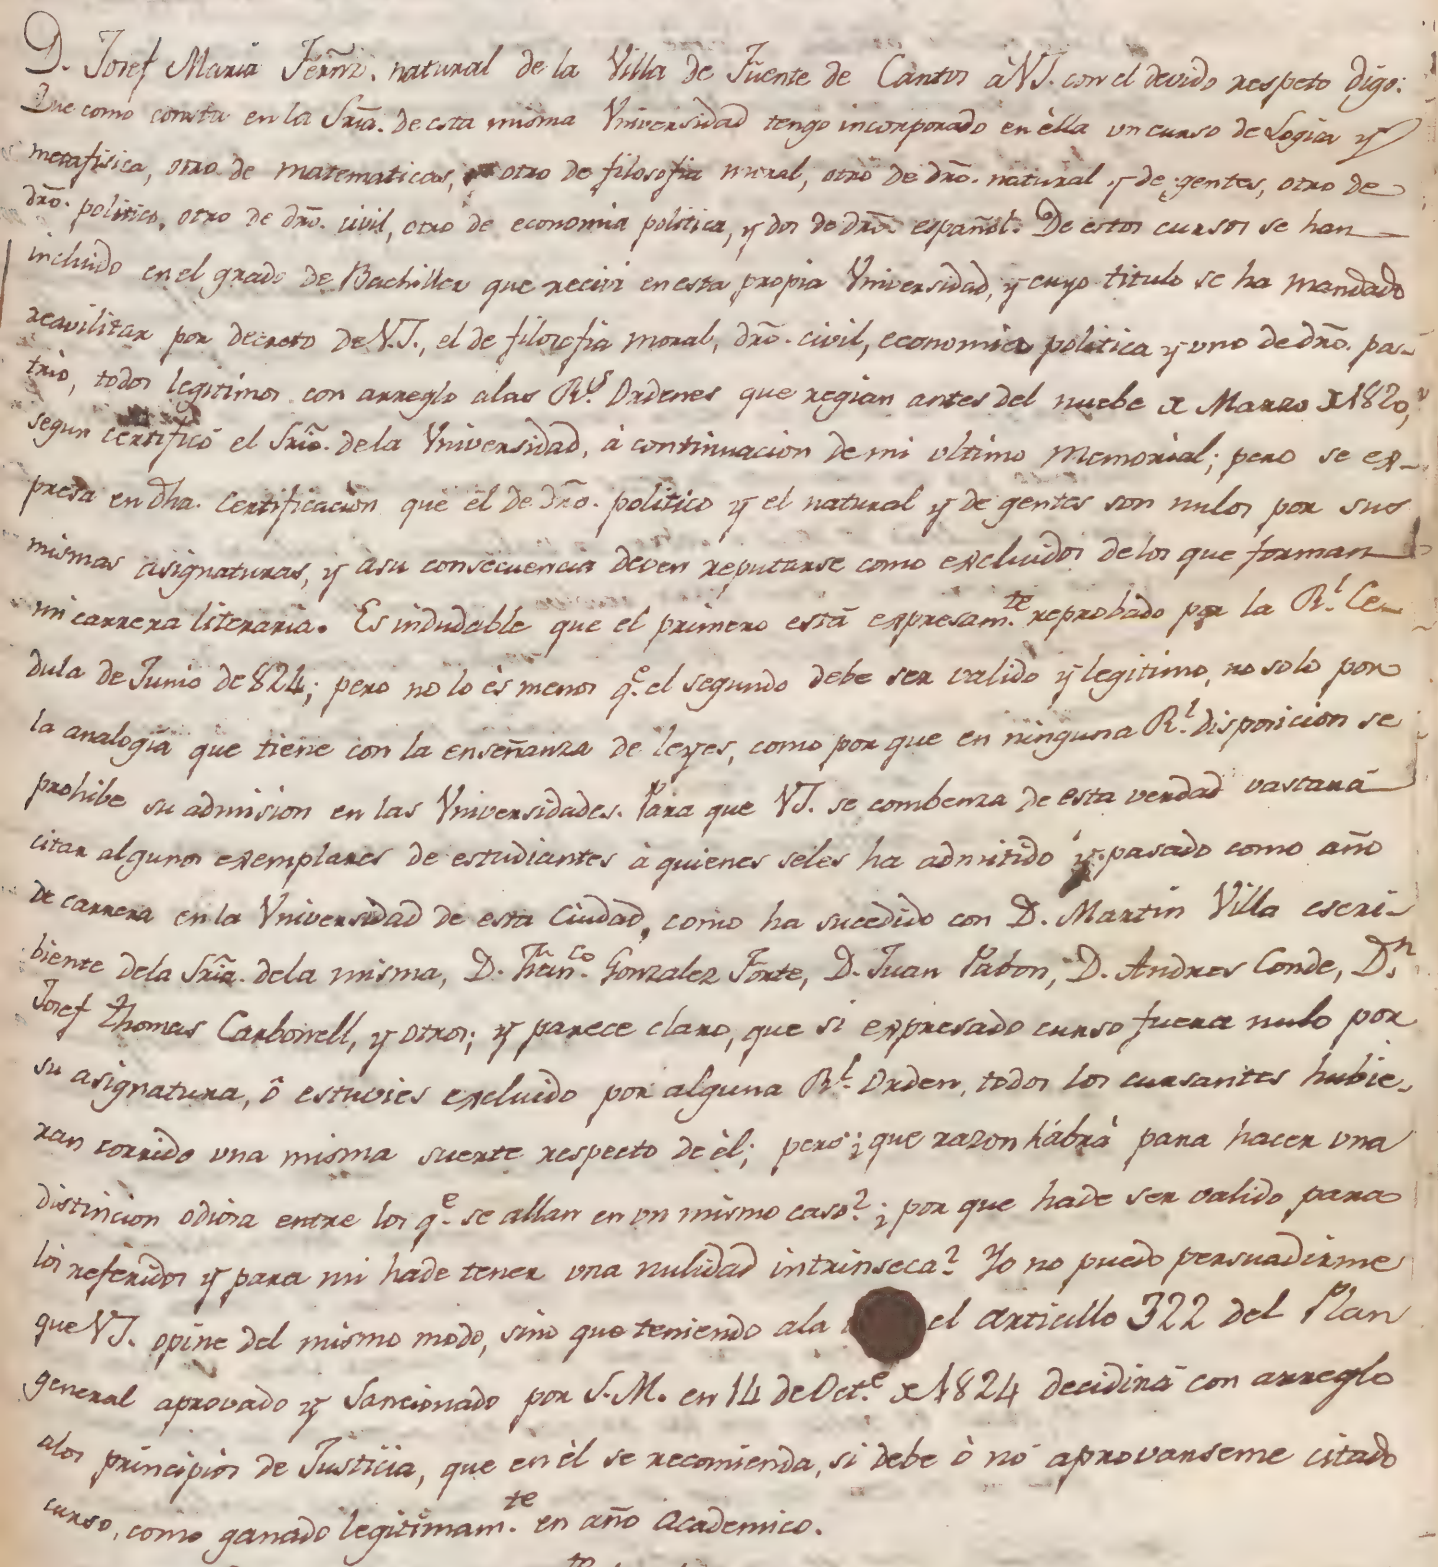 D. Josef Maria Fernz. natural de la Villa de Fuente de Cantos à VS. con el devido respeto digo:
Que como consta en la Sria. de esta misma Vniversidad tengo incorporado en èlla vn curso de Logica y
metafisica, otro de matematicas, otro de filosofia moral, otro de dro. natural y de gentes, otro de
dro. politico, otro de dro. civil, otro de economia politica, y dos de dro. español. De estos cursos se han
incluido en el grado de Bachiller que recivi en esta propia Vniversidad, y cuyo titulo se ha mandado
reavilitar por decreto de V.S., el de filosofia moral, dro. civil, economia politica y vno de dro. pa-
trio, todos legitimos con arreglo a las Rs. Ordenes que regian antes del nuebe de Marzo de 1820,
segun certificó el Srio. de la Vniversidad, à continuacion de mi vltimo Memorial; pero se ex-
presa en dha. Certificaciòn que el de dro. politico y el natural y de gentes son nulos por sus
mismas asignaturas, y a su consecuencia deven reputarse como excluidos de los que forman
mi carrera literaria. Es indudable que el primero está expresam.te reprobado por la Rl. Ce-
dula de Junio de 824; pero no lo ès menos q.e el segundo debe ser valido y legitimo, no solo por
la analogia que tiene con la enseñanza de leyes, como por que en ninguna Rl. disposicion se
prohibe su admision en las Vniversidades. Para que VS. se combenza de esta verdad vastará
citar algunos exemplares de estudiantes à quienes seles ha admitido y pasado como año
de carrera en la Vniversidad de esta Ciudad, como ha sucedido con D. Martin Villa escri-
biente dela Sria. dela misma, D. Franco. Gonzalez Forte, D. Juan Pabon, D. Andres Conde, D.n
Josef thomas Carbonell, y otros; y parece claro, que si expresado curso fuera nulo por
su asignatura, ô estuvies excluido por alguna Rl. Orden, todos los cursantes hubie-
ran corrido vna misma suerte respecto de èl; pero ¿que razon habrà para hacer vna
distincion odiosa entre los q.e se allan en vn mismo caso? ¿por que hade ser valido para
los referidos y para mi hade tener vna nulidad intrinseca? Yo no puedo persuadirme
que VS. opine del mismo modo, sino que teniendo ala el articulo 322 del Plan
general aprovado y Sancionado por S.M. en 14 de Oct.e de 1824 decidirá con arreglo
alos principios de Justicia, que en èl se recomienda, si debe ò no aprovarseme citado
curso, como ganado legitimam.te en año academico.